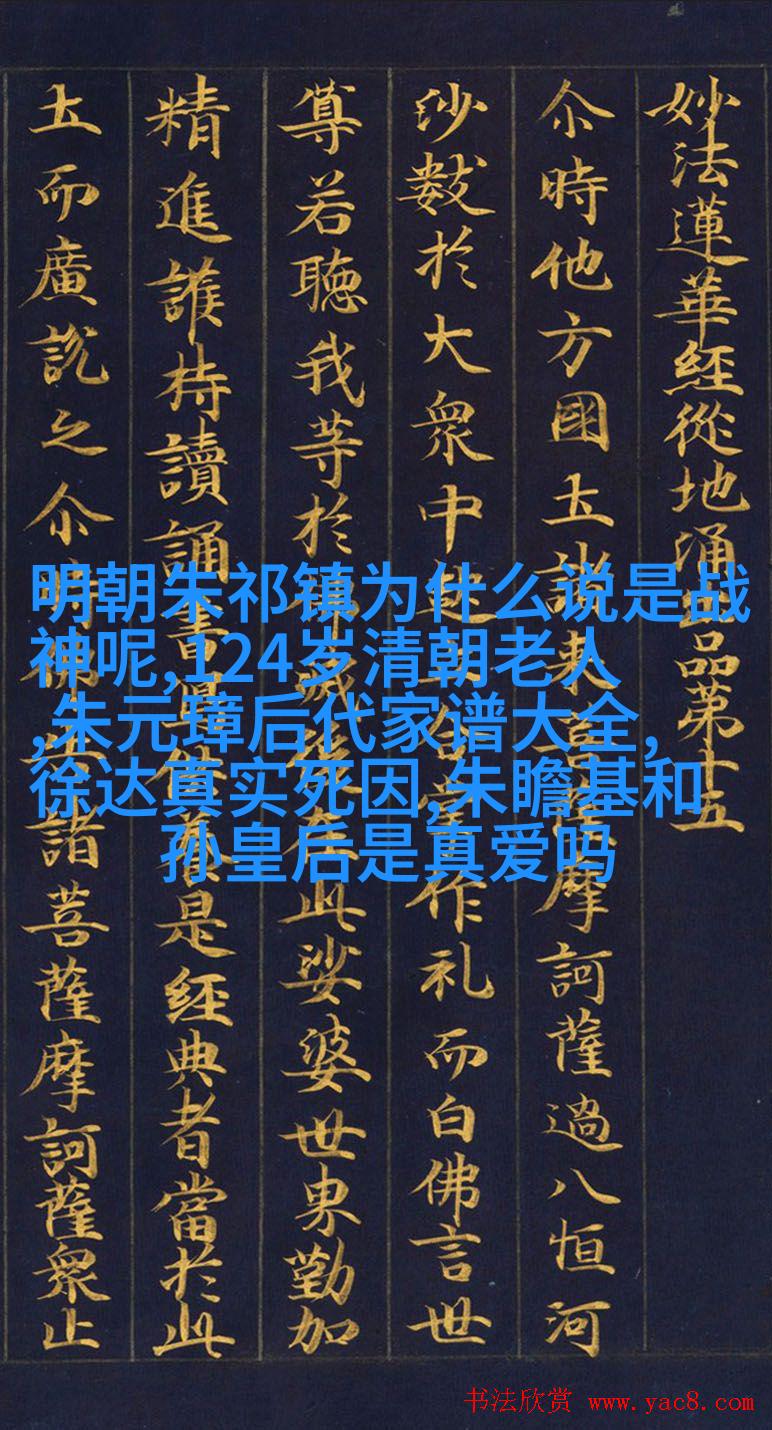 妙法蓮華經從地涌品第十五
尒時他方國土諸来菩薩摩訶薩過八恒河
沙數於大衆中起立合掌作礼而白佛言世
尊若聽我等於佛滅後在此娑婆世界勤加
精進護持讀誦書供養是經典者當於此
土而廣說之尒時佛諸菩薩摩訶薩衆止
明朝朱祁镇为什么说是战
神呢,124岁清朝老人
,朱元璋后代家谱大全,
徐达真实死因,朱瞻基和
孙皇后是真爱吗
书法欣赏 www.yac8.com